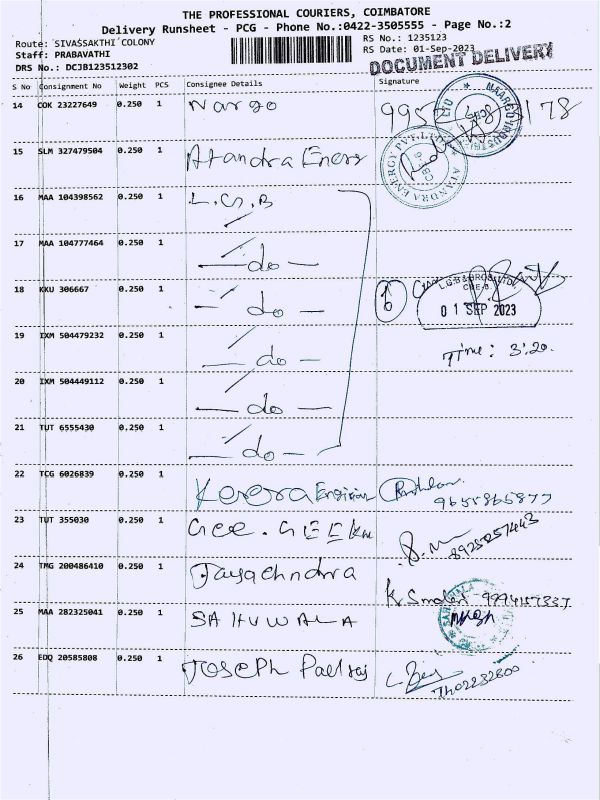 THE PROFESSIONAL COURIERS, COIMBATORE
Delivery Runsheet - PCG - Phone No.:0422-3505555 - Page No.:2
Route: SIVASSAKTHI COLONY
Staff: PRABAVATHI
DRS No.: DCJB123512302
RS No.: 1235123
RS Date: 01-Sep-2023
DOCUMENT DELIVERY
S No Consignment No Weight PCS Consignee Details Signature
14 COK 23227649 0.250 1 Nargo
15 SLM 327479504 0.250 1 Atandra Energy
ATANDRA ENERGY PVT.LTD
16 MAA 104398562 0.250 1 L.G.B
17 MAA 104777464 0.250 1 — do —
18 KKU 306667 0.250 1 — do —
6 L.G.B & BROS LTD
CBE-6.
01 SEP 2023
19 IXM 504479232 0.250 1 — do —
Time: 3:20.
20 IXM 504449112 0.250 1 — do —
21 TUT 6555430 0.250 1 — do —
22 TCG 6026839 0.250 1
23 TUT 355030 0.250 1 Gee. GEE
8925257443
24 TMG 200486410 0.250 1
25 MAA 282325041 0.250 1 SAHUWALA
26 EDQ 20585808 0.250 1 Joseph Paulraj